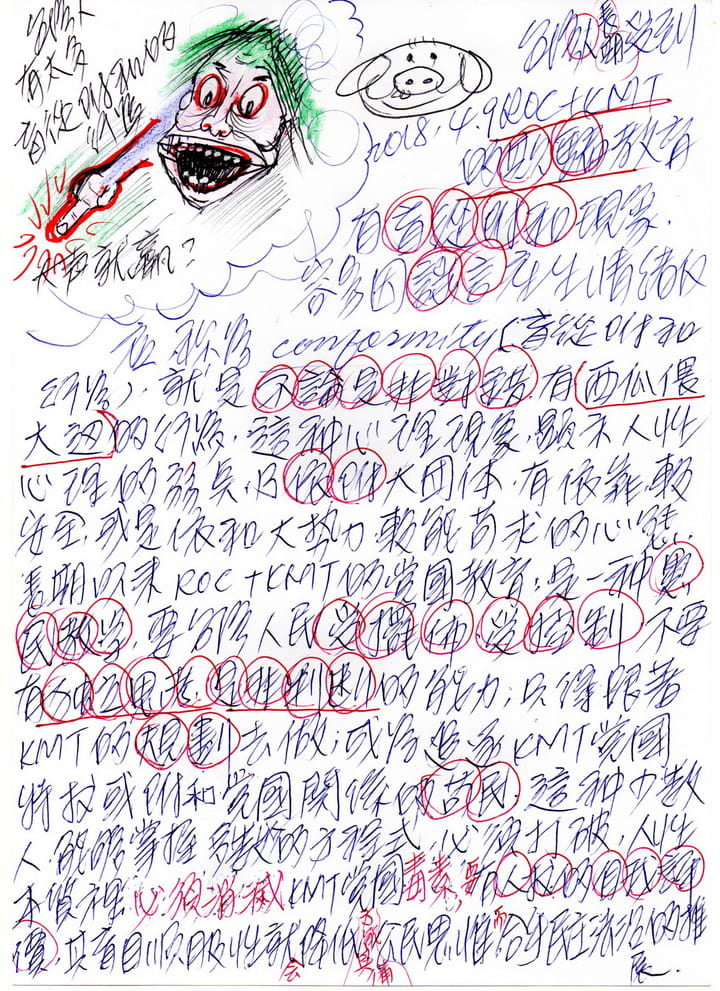 台灣人
有太多
盲從附和的
行為
大聲就贏?
台灣人長期受到
2018.4.9 ROC+KMT
的 教育
有盲從附和現象,
容易因謠言產生情緒反
應 稱為 conformity(盲從附和
行為), 就是不論是非對錯有西瓜偎
大邊的行為, 這種心理現象, 顯示人性
心理的弱點, 乃依附大団体, 有依靠, 較
安全, 或是依和大勢力, 較能苟求的心態,
長期以來ROC+KMT的党國教育, 是一種愚
民教學, 要台灣人民受擺佈受控制 不要
有独立思考, 是非判断的能力; 只得跟著
KMT的規劃去做; 或為追求KMT党國
特权或附和党國関係的苟民, 這種少數
人, 能夠掌握 的方程式, 必須打破, 人性
本質裡必須消滅KMT党國毒素, 要有人权的自我評
價, 具盲目順服性就會降低 人民思惟, 而 民主法治的推
展.